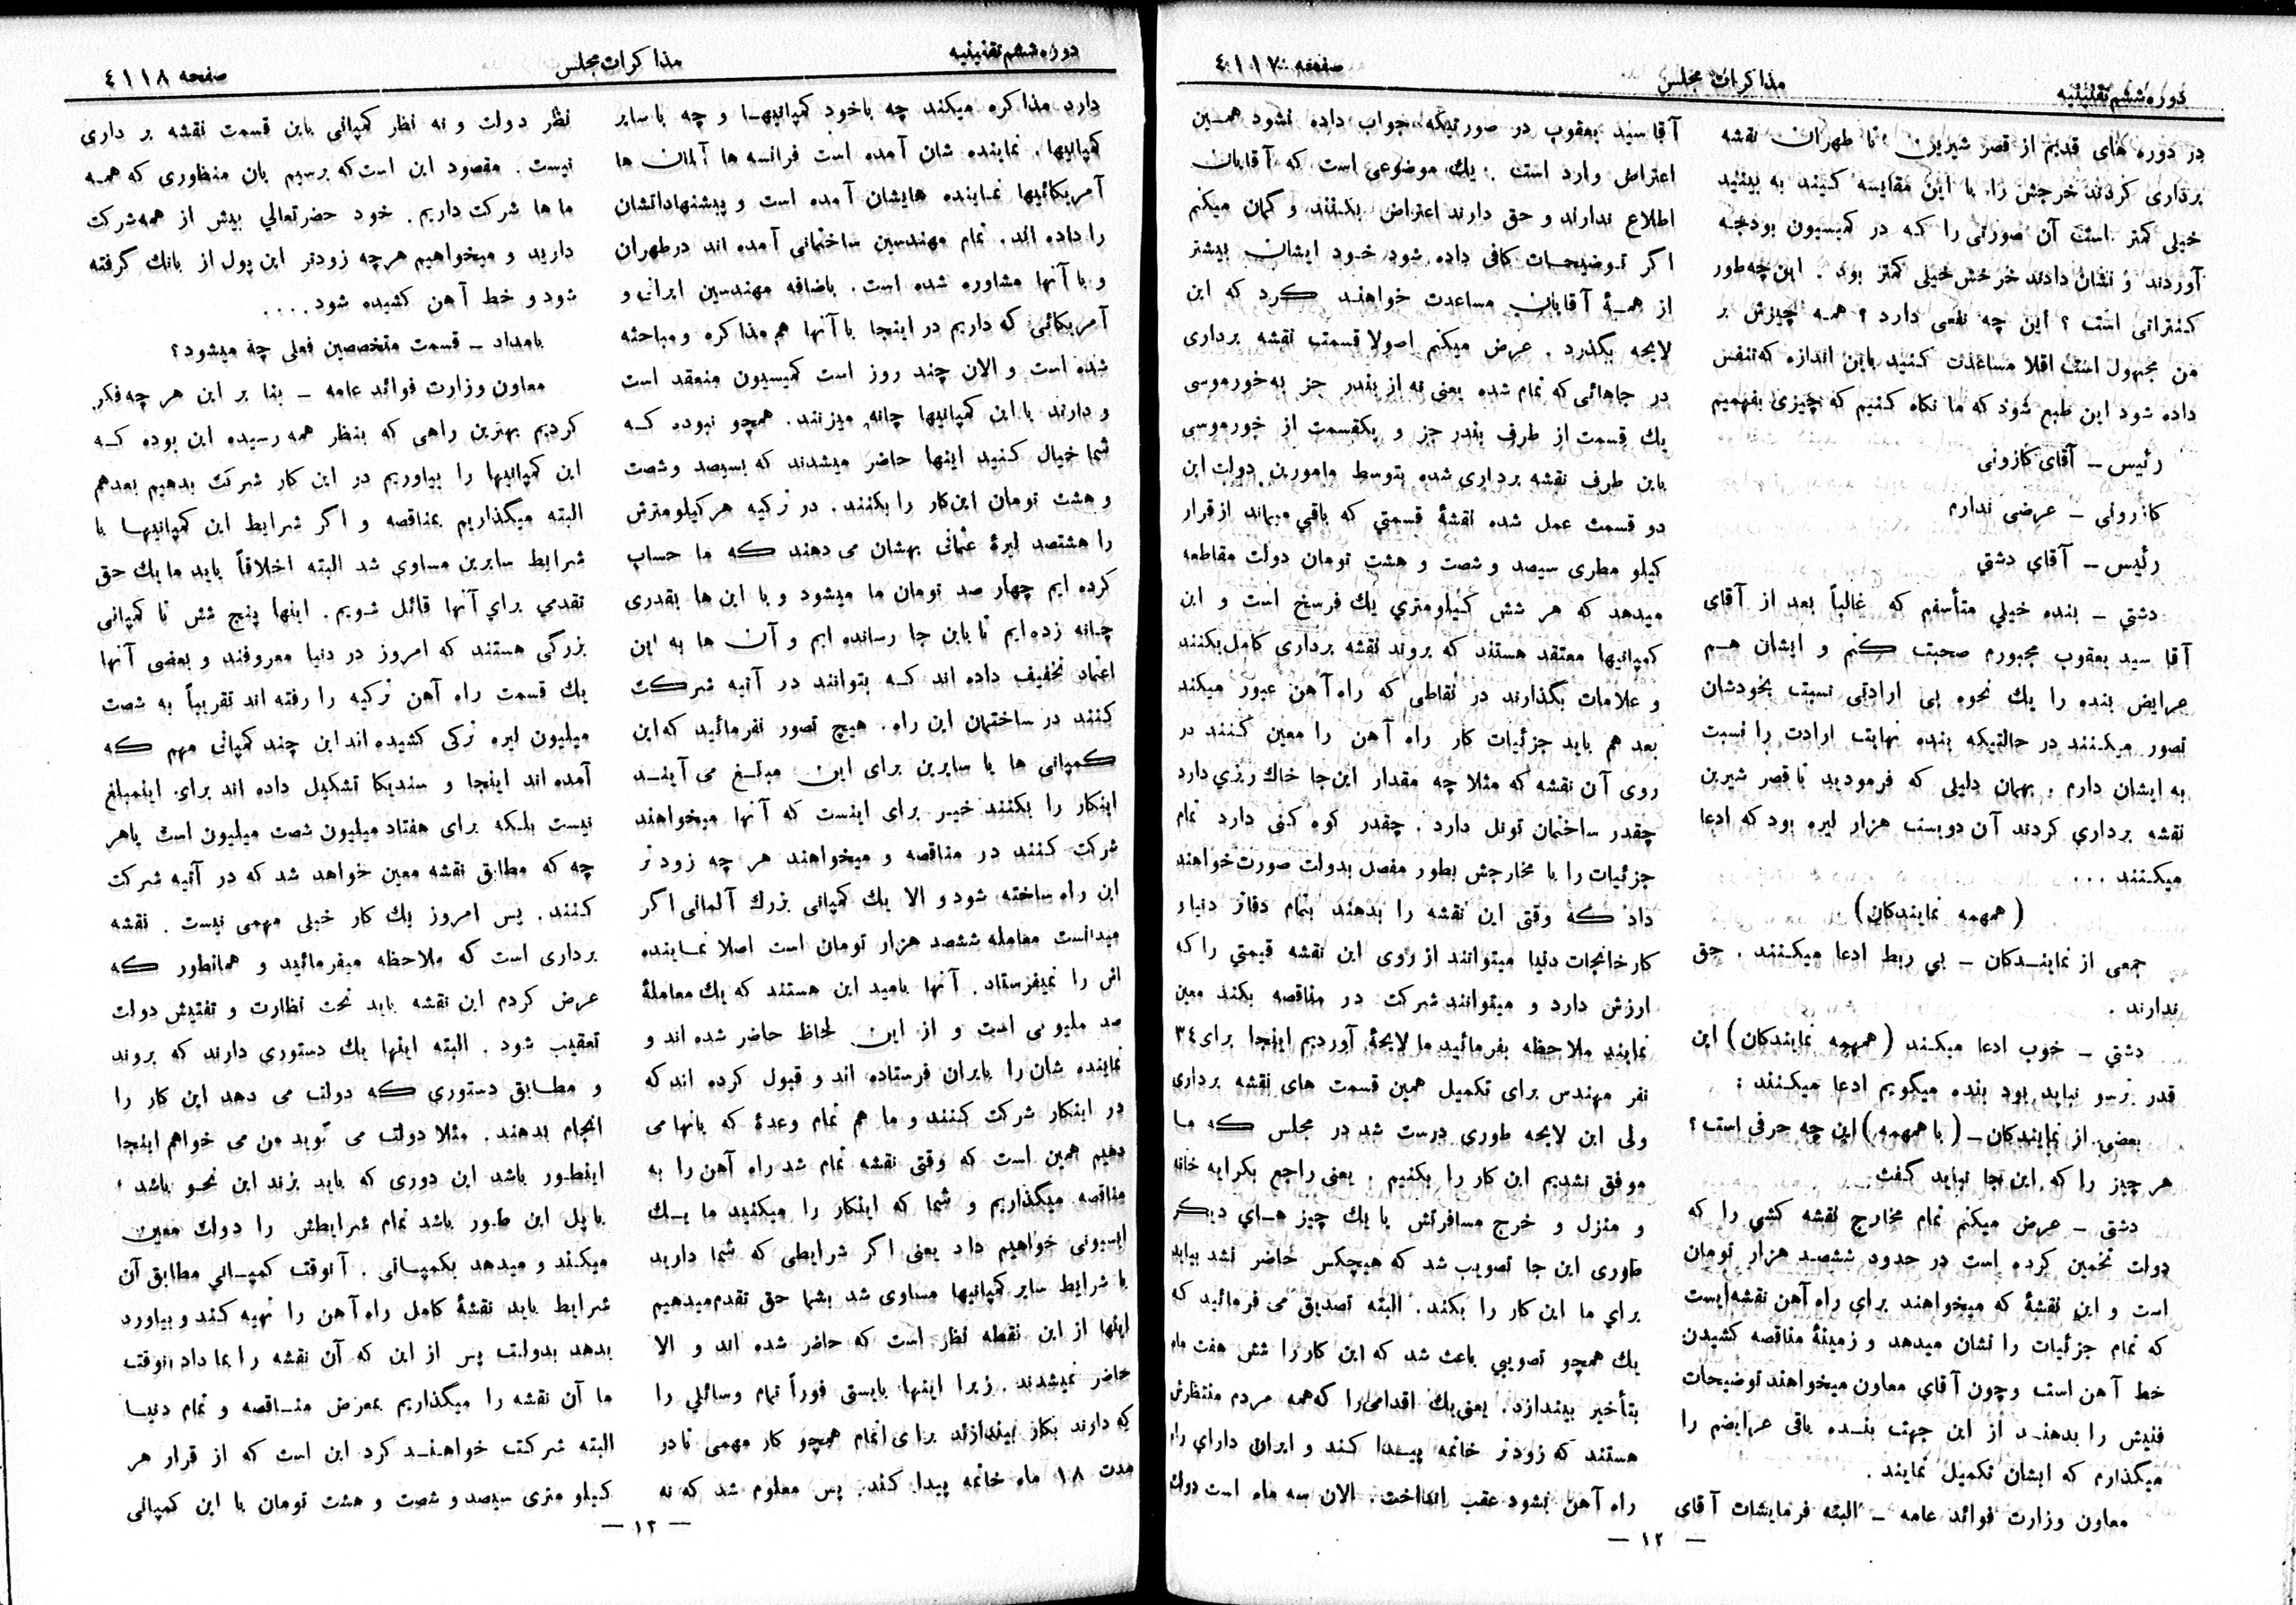 دوره ششم تقنینیه
مذاکرات مجلس
صفحه ٤١١٧
در دوره های قدیم از قصر شیرین تا طهران نقشه
برداری کردند خرجش را با این مقایسه کنید به بینید
خیلی کمتر است آن صورتی را که در کمیسیون بودجه
آوردند و نشان دادند خرجش خیلی کمتر بود . این چه طور
کنتراتی است ؟ این چه نفعی دارد ؟ همه چیزش بر
من مجهول است اقلا مساعدت کنید باین اندازه که تنفس
داده شود این طبع شود که ما نگاه کنیم که چیزی بفهمیم
رئیس – آقای کازرونی
کازرونی – عرضی ندارم
رئیس – آقای دشتی
دشتی – بنده خیلی متأسفم که غالباً بعد از آقای
آقا سید یعقوب مجبورم صحبت کنم و ایشان هم
عرایض بنده را یك نحوه بی ارادتی نسبت بخودشان
تصور میکنند در حالتیکه بنده نهایت ارادت را نسبت
به ایشان دارم . بهمان دلیلی که فرمودید تا قصر شیرین
نقشه برداری کردند آن دویست هزار لیره بود که ادعا
میکنند ...
(همهمه نمایندکان)
جمعی از نمایندکان – بی ربط ادعا میکنند . حق
ندارند .
دشتی – خوب ادعا میکند (همهمه نمایندکان) این
قدر ترسو نباید بود بنده میگویم ادعا میکنند :
بعضی از نمایندکان – (با همهمه) این چه حرفی است ؟
هر چیز را که این جا نباید گفت
دشتی – عرض میکنم تمام مخارج نقشه کشی را که
دولت تخمین کرده است در حدود ششصد هزار تومان
است و این نقشهٔ که میخواهند برای راه آهن نقشه‌ایست
که تمام جزئیات را نشان میدهد و زمینهٔ مناقصه کشیدن
خط آهن است و چون آقای معاون میخواهند توضیحات
فنیش را بدهند از این جهت بنده باقی عرایضم را
میگذارم که ایشان تکمیل نمایند .
معاون وزارت فوائد عامه – البته فرمایشات آقای
آقا سید یعقوب در صورتیکه جواب داده نشود همین
اعتراض وارد است . یك موضوعی است که آقایان
اطلاع ندارند و حق دارند اعتراض بکنند و گمان میکنم
اگر توضیحات کافی داده شود خود ایشان بیشتر
از همهٔ آقایان مساعدت خواهند کرد که این
لایحه بگذرد . عرض میکنم اصولا قسمت نقشه برداری
در جاهائی که تمام شده یعنی نه از بندر جز به خورموسی
یك قسمت از طرف بندر جز و یکقسمت از خورموسی
باین طرف نقشه برداری شده بتوسط مامورین دولت این
دو قسمت عمل شده نقشهٔ قسمتی که باقی میماند از قرار
کیلو مطری سیصد و شصت و هشت تومان دولت مقاطعه
میدهد که هر شش کیلومتری یك فرسخ است و این
کمپانیها معتقد هستند که بروند نقشه برداری کامل بکنند
و علامات بگذارند در نقاطی که راه آهن عبور میکند
بعد هم باید جزئیات کار راه آهن را معین کنند در
روی آن نقشه که مثلا چه مقدار این‌جا خاك ریزی دارد
چقدر ساختمان تونل دارد . چقدر کوه کنی دارد تمام
جزئیات را با مخارجش بطور مفصل بدولت صورت خواهند
داد که وقتی این نقشه را بدهند بتمام دفاتر دنیا و
کارخانجات دنیا میتوانند از روی این نقشه قیمتی را که
ارزش دارد و میتوانند شرکت در مناقصه بکنند معین
نمایند ملاحظه بفرمائید ما لایحهٔ آوردیم اینجا برای ٣٤
نفر مهندس برای تکمیل همین قسمت های نقشه برداری
ولی این لایحه طوری درست شد در مجلس که ما
موفق نشدیم این کار را بکنیم . یعنی راجع بکرایه خانه
و منزل و خرج مسافرتش یا یك چیز های دیگر
طوری این جا تصویب شد که هیچکس حاضر نشد بیاید
برای ما این کار را بکند . البته تصدیق می فرمائید که
یك همچو تصویبی باعث شد که این کار را شش هفت ماه
بتأخیر بیندازد . یعنی یك اقدامی را که همه مردم منتظرش
هستند که زودتر خاتمه پیدا کند و ایران دارای راه
راه آهن بشود عقب انداخت . الان سه ماه است دولت
– ١٢ –
دوره ششم تقنینیه
مذاکرات مجلس
صفحه ٤١١٨
دارد مذاکره میکند چه باخود کمپانیها و چه با سایر
کمپانیها . نماینده شان آمده است فرانسه ها آلمان ها
آمریکائیها نماینده هایشان آمده است و پیشنهاداتشان
را داده اند . تمام مهندسین ساختمانی آمده اند در طهران
و با آنها مشاوره شده است . باضافه مهندسین ایرانی و
آمریکائی که داریم در اینجا با آنها هم مذاکره و مباحثه
شده است و الان چند روز است کمیسیون منعقد است
و دارند با این کمپانیها چانه میزنند . همچو نبوده که
شما خیال کنید اینها حاضر میشدند که بسیصد و شصت
و هشت تومان این‌کار را بکنند . در ترکیه هر کیلومترش
را هشتصد لیرهٔ عثمانی بهشان می دهند که ما حساب
کرده ایم چهار صد تومان ما میشود و با این ها بقدری
چانه زده ایم تا باین جا رسانده ایم و آن ها به این
اعتماد تخفیف داده اند که بتوانند در آتیه شرکت
کنند در ساختمان این راه . هیچ تصور نفرمائید که این
کمپانی ها یا سایرین برای این مبلغ می آیند
اینکار را بکنند خیر برای اینست که آنها میخواهند
شرکت کنند در مناقصه و میخواهند هر چه زودتر
این راه ساخته شود و الا یك کمپانی بزرك آلمانی اگر
میدانست معامله ششصد هزار تومان است اصلا نماینده
اش را نمیفرستاد . آنها بامید این هستند که یك معاملهٔ
صد ملیونی است و از این لحاظ حاضر شده اند و
نماینده شان را بایران فرستاده اند و قبول کرده اند که
در اینکار شرکت کنند و ما هم تمام وعدهٔ که بآنها می
دهیم همین است که وقتی نقشه تمام شد راه آهن را به
مناقصه میگذاریم و شما که اینکار را میکنید ما یك
اپسیونی خواهیم داد یعنی اگر شرایطی که شما دارید
با شرایط سایر کمپانیها مساوی شد بشما حق تقدم میدهیم
اینها از این نقطه نظر است که حاضر شده اند و الا
حاضر نمیشدند . زیرا اینها بایستی فوراً تمام وسائلی را
که دارند بکار بیندازند برای اتمام همچو کار مهمی تا در
مدت ١٨ ماه خاتمه پیدا کند . پس معلوم شد که نه
نظر دولت و نه نظر کمپانی باین قسمت نقشه بر داری
نیست . مقصود این است که برسیم بآن منظوری که همه
ما ها شرکت داریم . خود حضرتعالی بیش از همه شرکت
دارید و میخواهیم هرچه زودتر این پول از بانك گرفته
شود و خط آهن کشیده شود ....
بامداد – قسمت متخصصین فعلی چه میشود ؟
معاون وزارت فوائد عامه – بنا بر این هر چه فکر
کردیم بهترین راهی که بنظر همه رسیده این بوده که
این کمپانیها را بیاوریم در این کار شرکت بدهیم بعدهم
البته میگذاریم بمناقصه و اگر شرایط این کمپانیها با
شرایط سایرین مساوی شد البته اخلاقاً باید ما یك حق
تقدمی برای آنها قائل شویم . اینها پنج شش تا کمپانی
بزرگی هستند که امروز در دنیا معروفند و بعضی آنها
یك قسمت راه آهن ترکیه را رفته اند تقریباً به شصت
میلیون لیره ترکی کشیده اند این چند کمپانی مهم که
آمده اند اینجا و سندیکا تشکیل داده اند برای اینمبلغ
نیست بلکه برای هفتاد میلیون شصت میلیون است یاهر
چه که مطابق نقشه معین خواهد شد که در آتیه شرکت
کنند . پس امروز یك کار خیلی مهمی نیست . نقشه
برداری است که ملاحظه میفرمائید و همانطور که
عرض کردم این نقشه باید تحت نظارت و تفتیش دولت
تعقیب شود . البته اینها یك دستوری دارند که بروند
و مطابق دستوری که دولت می دهد این کار را
انجام بدهند . مثلا دولت می گوید من می خواهم اینجا
اینطور باشد این دوری که باید بزند این نحو باشد ،
یا پل این طور باشد تمام شرایطش را دولت معین
میکند و میدهد بکمپانی . آنوقت کمپانی مطابق آن
شرایط باید نقشهٔ کامل راه آهن را تهیه کند و بیاورد
بدهد بدولت پس از این که آن نقشه را بما داد آنوقت
ما آن نقشه را میگذاریم بمعرض مناقصه و تمام دنیا
البته شرکت خواهند کرد این است که از قرار هر
کیلو متری سیصد و شصت و هشت تومان با این کمپانی
– ١٣ –